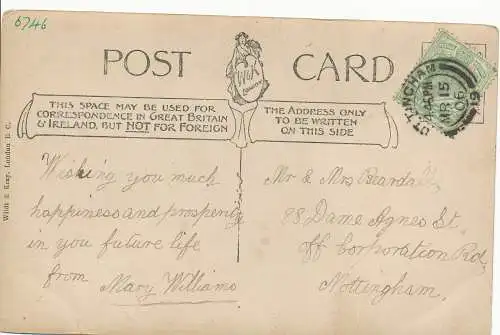 6746
POST CARD
W&K
LONDON
THIS SPACE MAY BE USED FOR
CORRESPONDENCE IN GREAT BRITAIN
& IRELAND, BUT NOT FOR FOREIGN
THE ADDRESS ONLY
TO BE WRITTEN
ON THIS SIDE
NOTTINGHAM
MR 15
06
19
Wildt & Kray, London E.C.
Wishing you much
happiness and prosperity
in you future life
from Mary Williams
Mr & Mrs Beardall
88 Dame Agnes St
off Corporation Rd,
Nottingham,